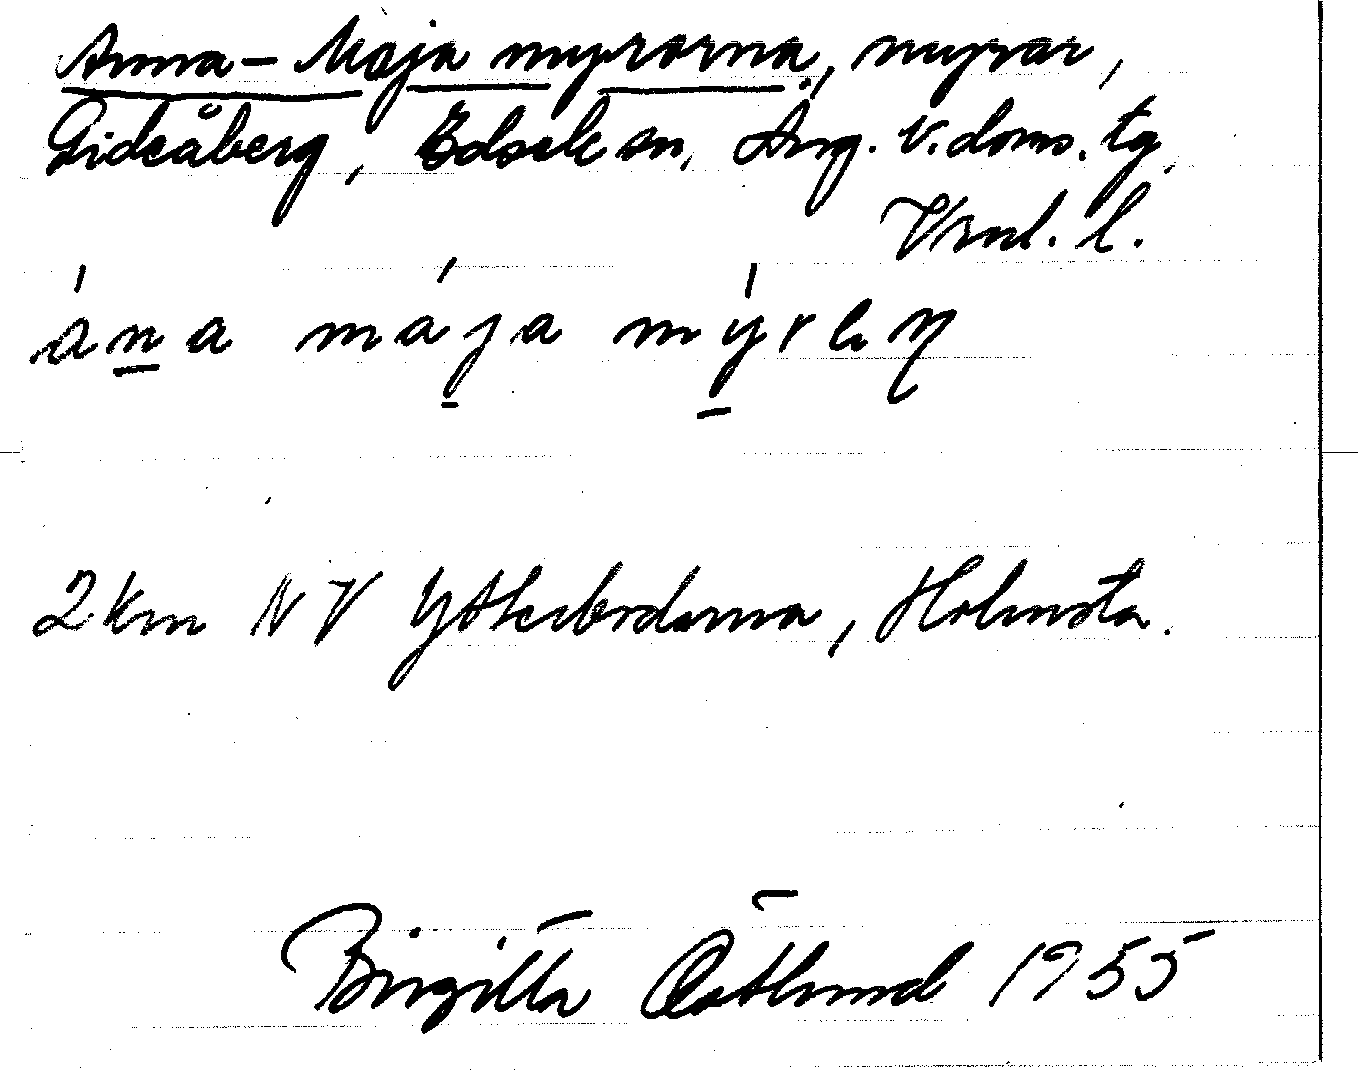 Anna-Maja myrorna, myrar,
Gideåberg, Edsele sn, Ång. v. doms. tg
Vsnl. l.
ána mája mýrɩŋ
2 km NV Ytterbodarna, Holmsta.
Birgitta Östlund 1955